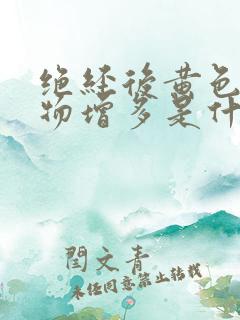 绝经后黄色
物增多是什
闫文青
未经同意禁止转载